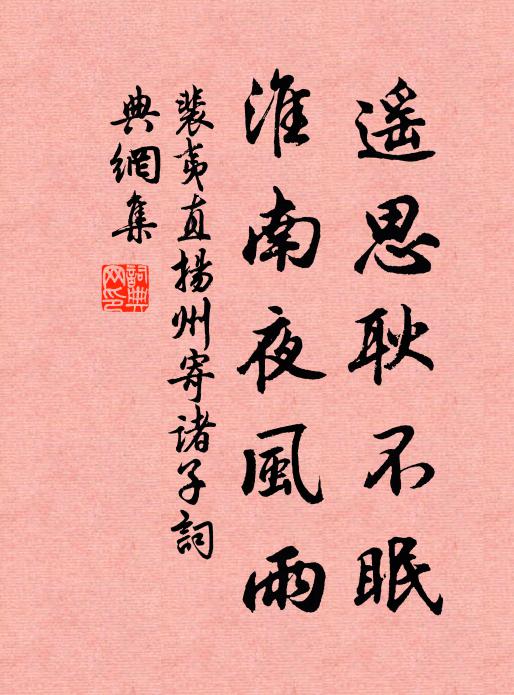 遥思耿不眠
淮南夜風雨
裴夷直揚州寄諸子詞
典網集
詞典網印